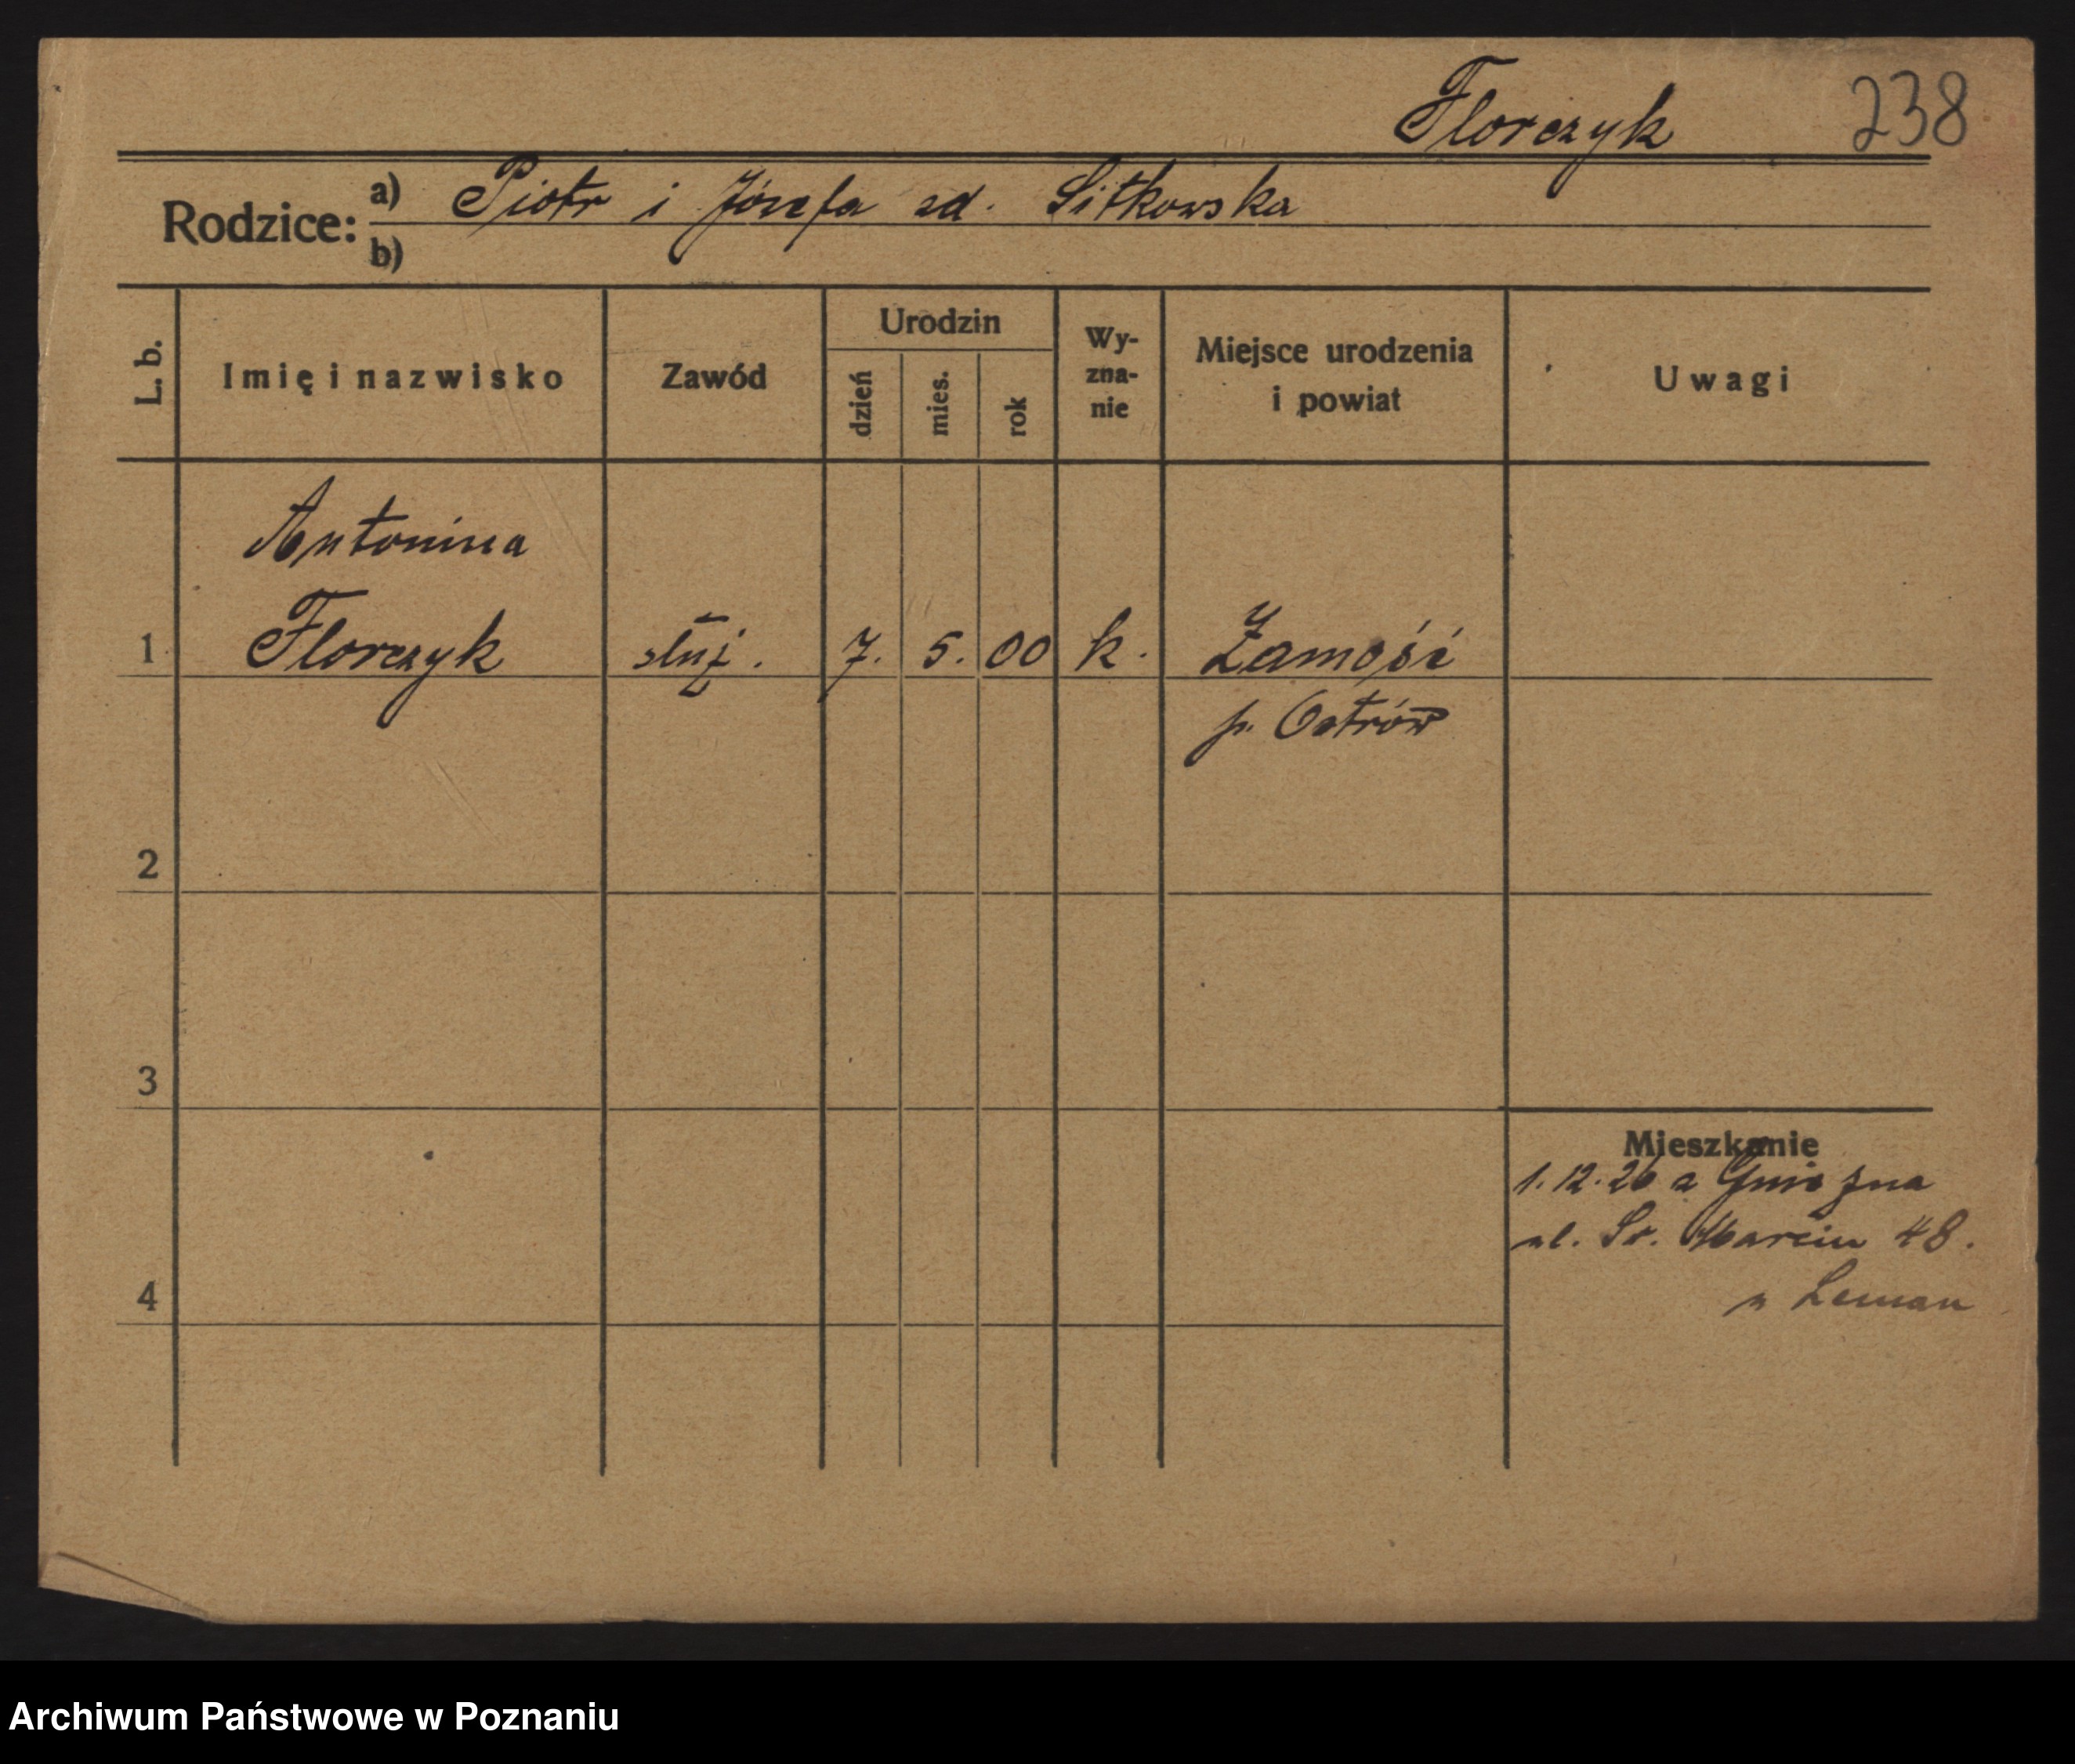 Florczyk 238
Rodzice: a) Piotr i Józefa zd. Sitkowska
b)
L. b. Imię i nazwisko Zawód Urodzin dzień mies. rok Wy-zna-nie Miejsce urodzenia i powiat Uwagi
Antonina
1 Florczyk służ. 7. 5. 00 k. Zamość
p. Ostrów
2
3
Mieszkanie
1.12.26 z Gniezna
ul. Św. Marcin 48.
4 u Leman
Archiwum Państwowe w Poznaniu